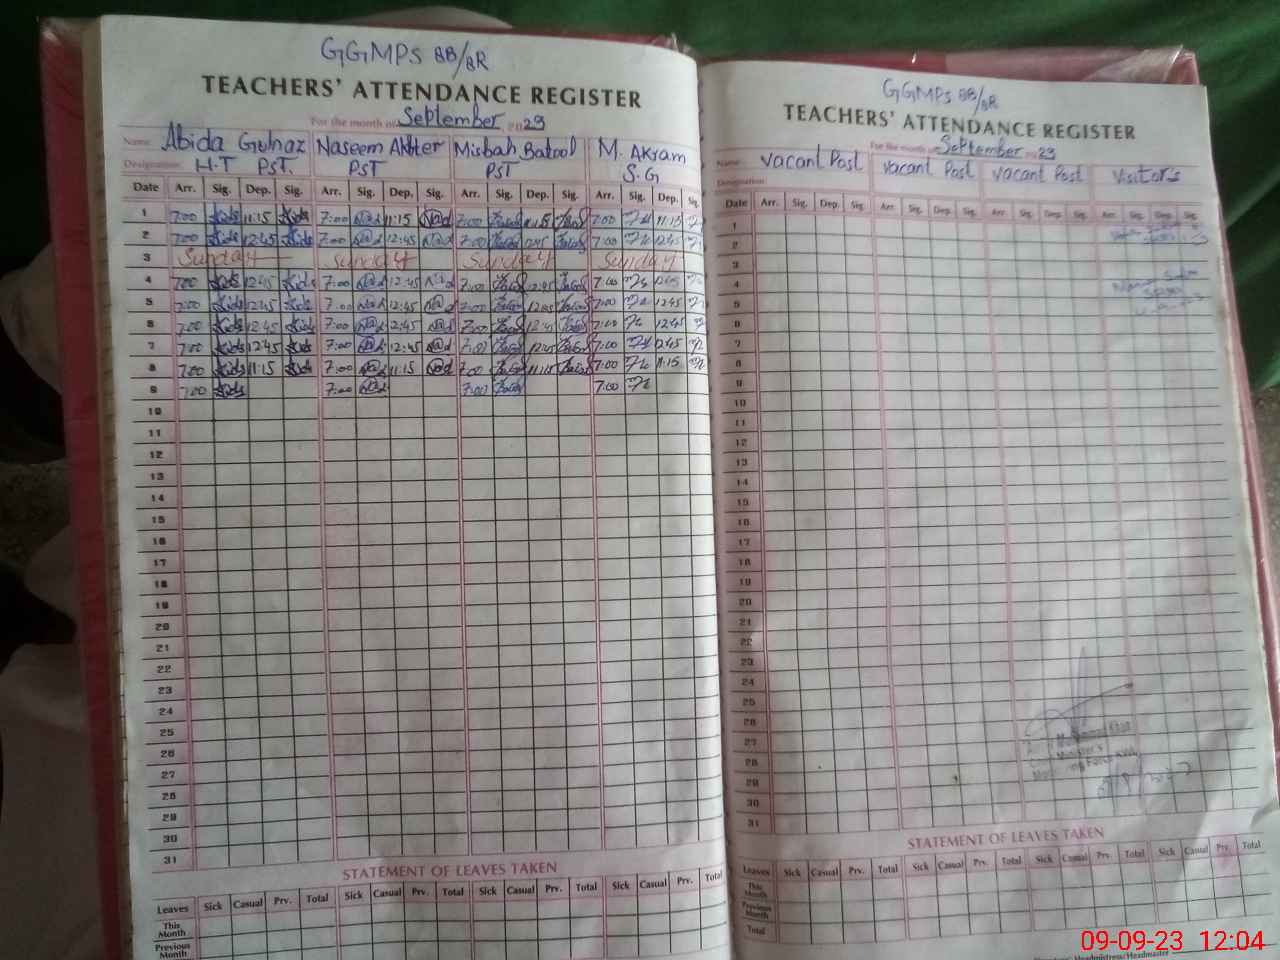 GGMPS 8B/8R
TEACHERS' ATTENDANCE REGISTER
For the month of September 2023
Name Abida Gulnaz Naseem Akhter Misbah Batool M. Akram
Designation H.T PST. PST PST S.G
Date Arr. Sig. Dep. Sig. Arr. Sig. Dep. Sig. Arr. Sig. Dep. Sig. Arr. Sig. Dep. Sig.
1 7:00 11:15 7:00 11:15 7:00 11:15 7:00 11:15
2 7:00 12:45 7:00 12:45 7:00 12:45 7:00 12:45
3 Sunday Sunday Sunday Sunday
4 7:00 12:45 7:00 12:45 7:00 12:45 7:00 12:45
5 7:00 12:45 7:00 12:45 7:00 12:45 7:00 12:45
6 7:00 12:45 7:00 12:45 7:00 12:45 7:00 12:45
7 7:00 12:45 7:00 12:45 7:00 12:45 7:00 12:45
8 7:00 11:15 7:00 11:15 7:00 11:15 7:00 11:15
9 7:00 7:00 7:00 7:00
10
11
12
13
14
15
16
17
18
19
20
21
22
23
24
25
26
27
28
29
30
31
STATEMENT OF LEAVES TAKEN
Leaves Sick Casual Prv. Total Sick Casual Prv. Total Sick Casual Prv. Total Sick Casual Prv. Total
This Month
Previous Month
GGMPS 8B/8R
TEACHERS' ATTENDANCE REGISTER
For the month of September 2023
Name Vacant Post Vacant Post Vacant Post Visitors
Designation
Date Arr. Sig. Dep. Sig. Arr. Sig. Dep. Sig. Arr. Sig. Dep. Sig. Arr. Sig. Dep. Sig.
1
2
3
4
5
6
7
8
9
10
11
12
13
14
15
16
17
18
19
20
21
22
23
24
25
26
27
28
29
30
31
STATEMENT OF LEAVES TAKEN
Leaves Sick Casual Prv. Total Sick Casual Prv. Total Sick Casual Prv. Total Sick Casual Prv. Total
This Month
Previous Month
Total
Headmistress/Headmaster
09-09-23 12:04